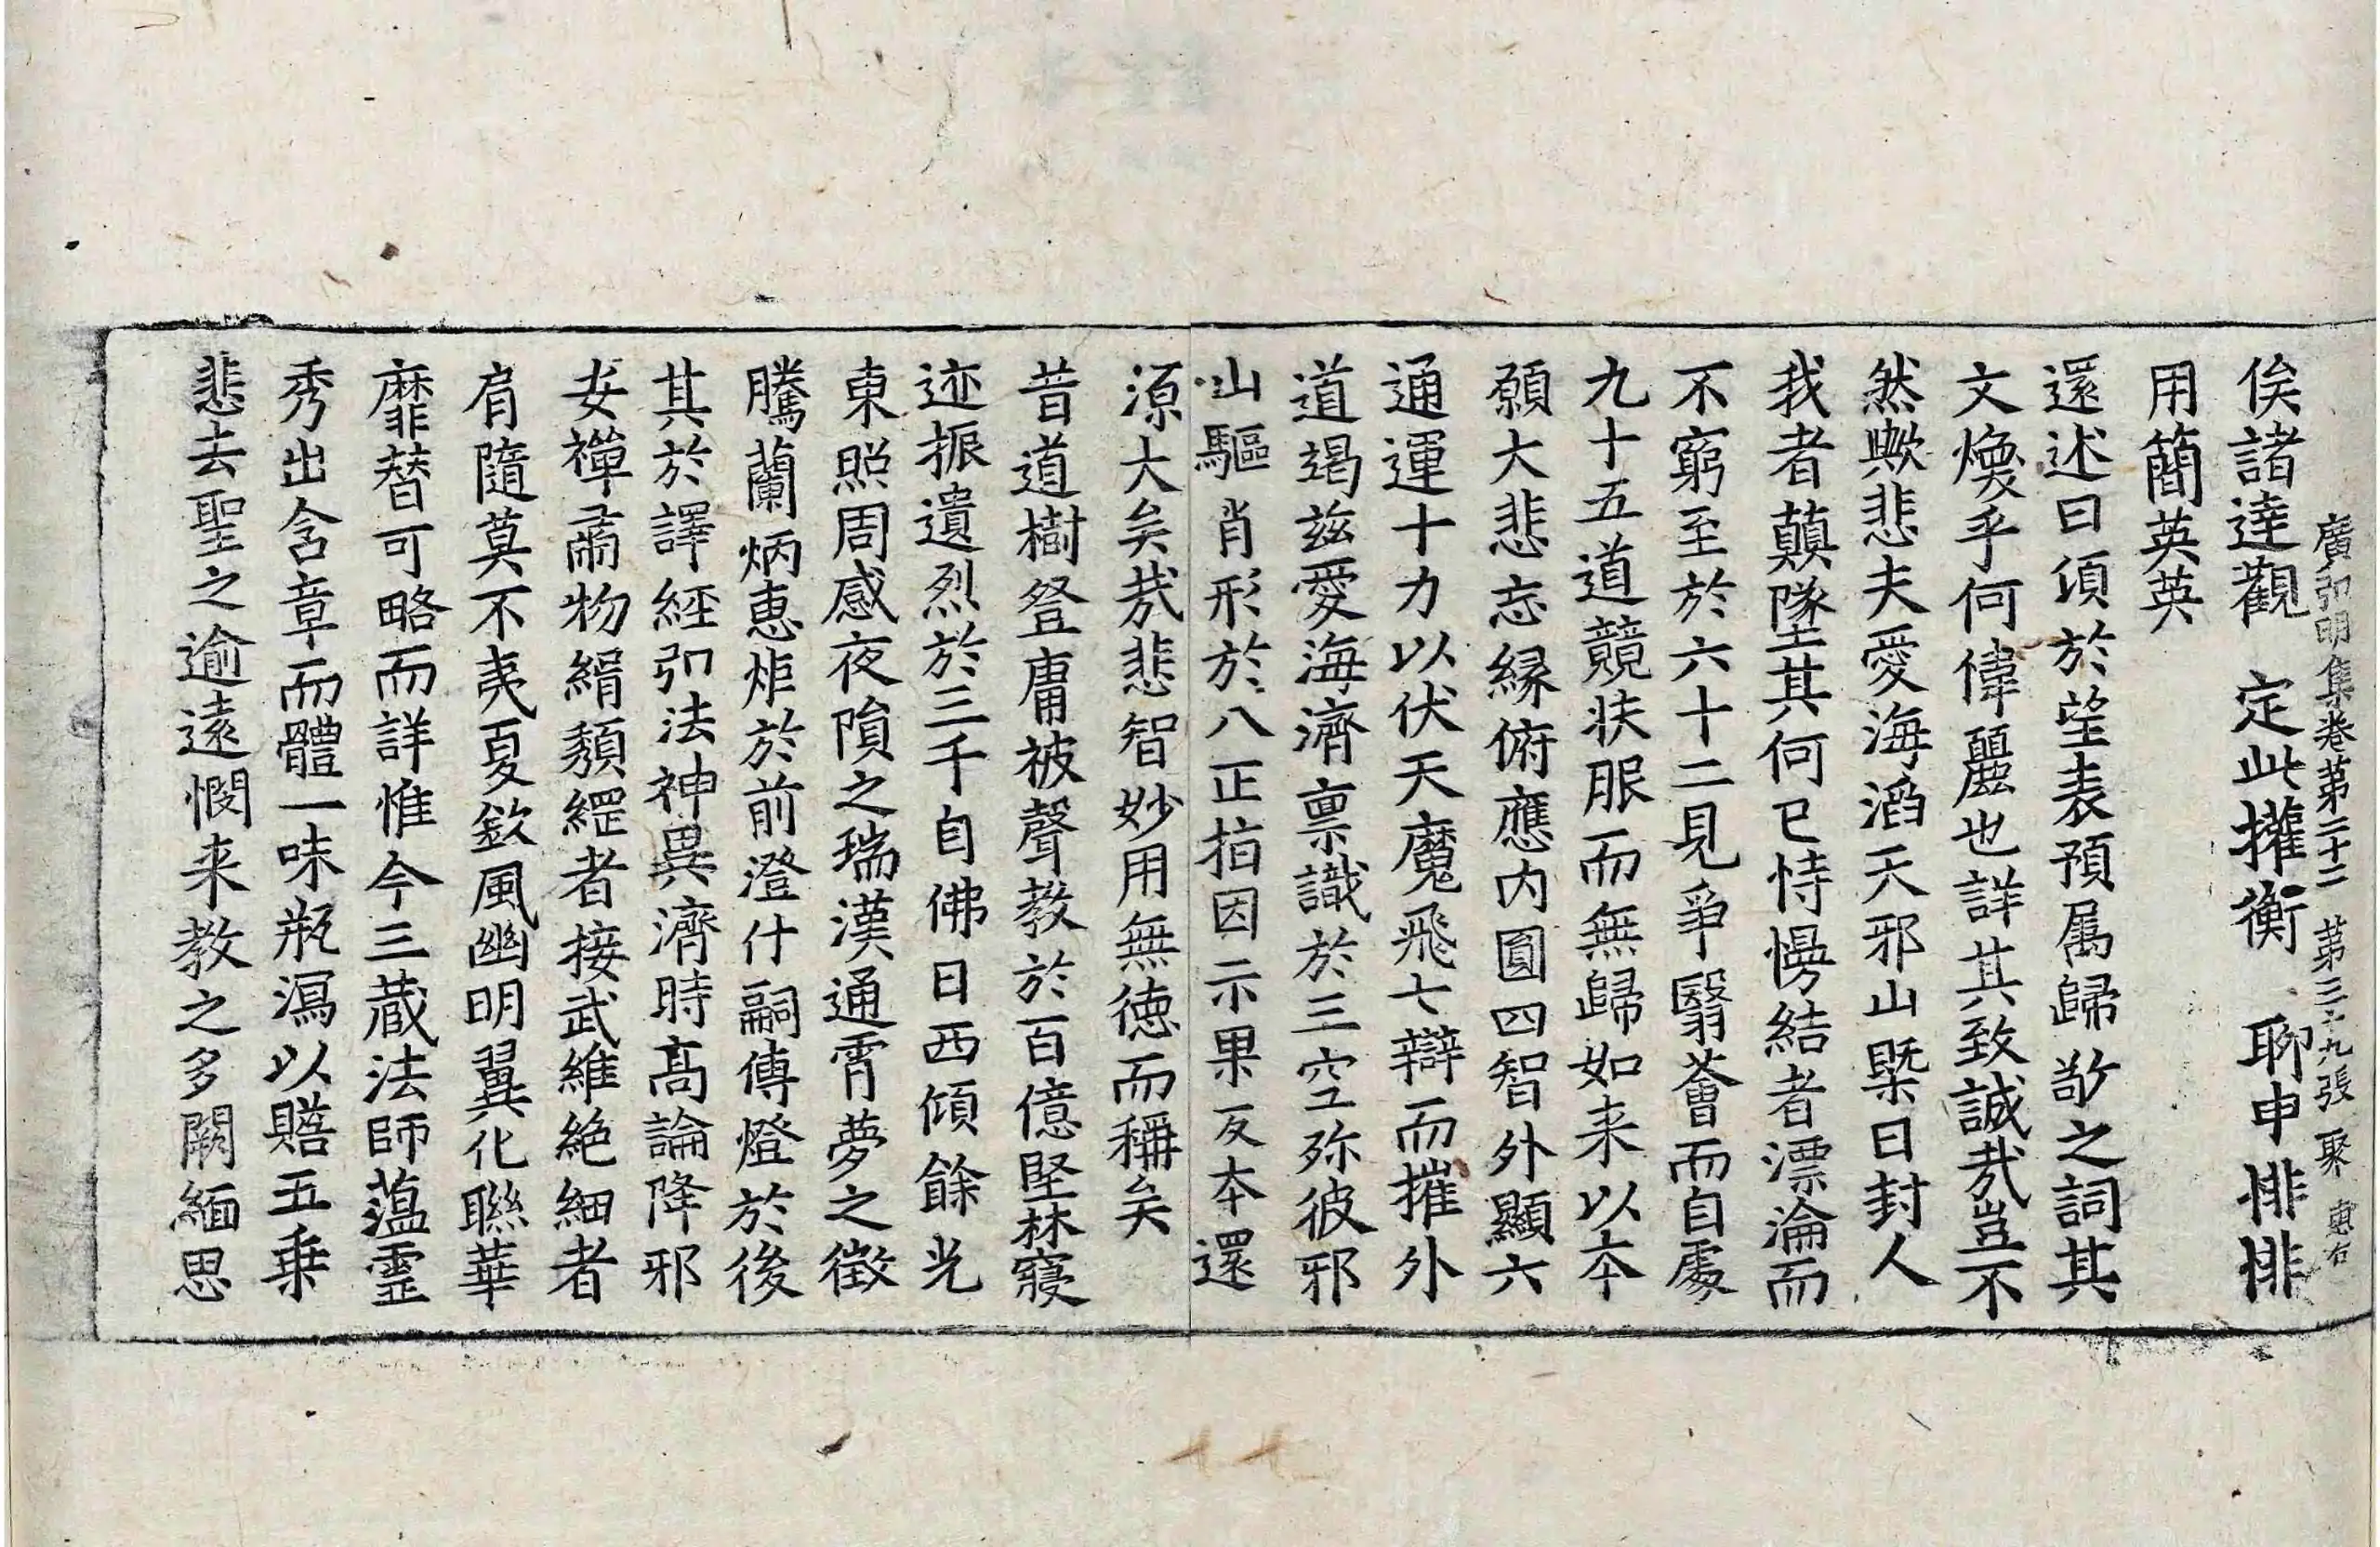 廣弘明集卷第二十二 第三十九張 聚
俟諸達觀 定此攉衡 聊申悱悱
用簡英英
還述曰湏於望表預属歸敬之詞其
文煥乎何偉麗也詳其致誠㢤豈不
然歟悲夫愛海滔天邪山槩日封人
我者顛墜其何已恃慢結者漂淪而
不窮至於六十二見爭翳薈而自處
九十五道競扶服而無歸如来以夲
願大悲忘縁俯應内圓四智外顯六
通運十力以伏天魔飛七辯而摧外
道竭兹愛海濟禀識於三空弥彼邪
山驅肖形於八正指因示果反夲還
源大矣㢤悲智妙用無德而稱矣
昔道樹登庸被聲教於百億堅林寢
迹振遺烈於三千自佛日西傾餘光
東照周感夜隕之瑞漢通霄夢之徵
騰蘭炳恵炬於前澄什嗣傅燈於後
其於譯經弘法神異濟時髙論降邪
安禪肅物緝頽綱者接武維絶細者
肩隨莫不夷夏欽風幽明翼化聮華
靡替可略而詳惟今三蔵法師蕰靈
秀出含章而體一味瓶㵼以贍五乗
悲去聖之逾遠憫来教之多闕緬思